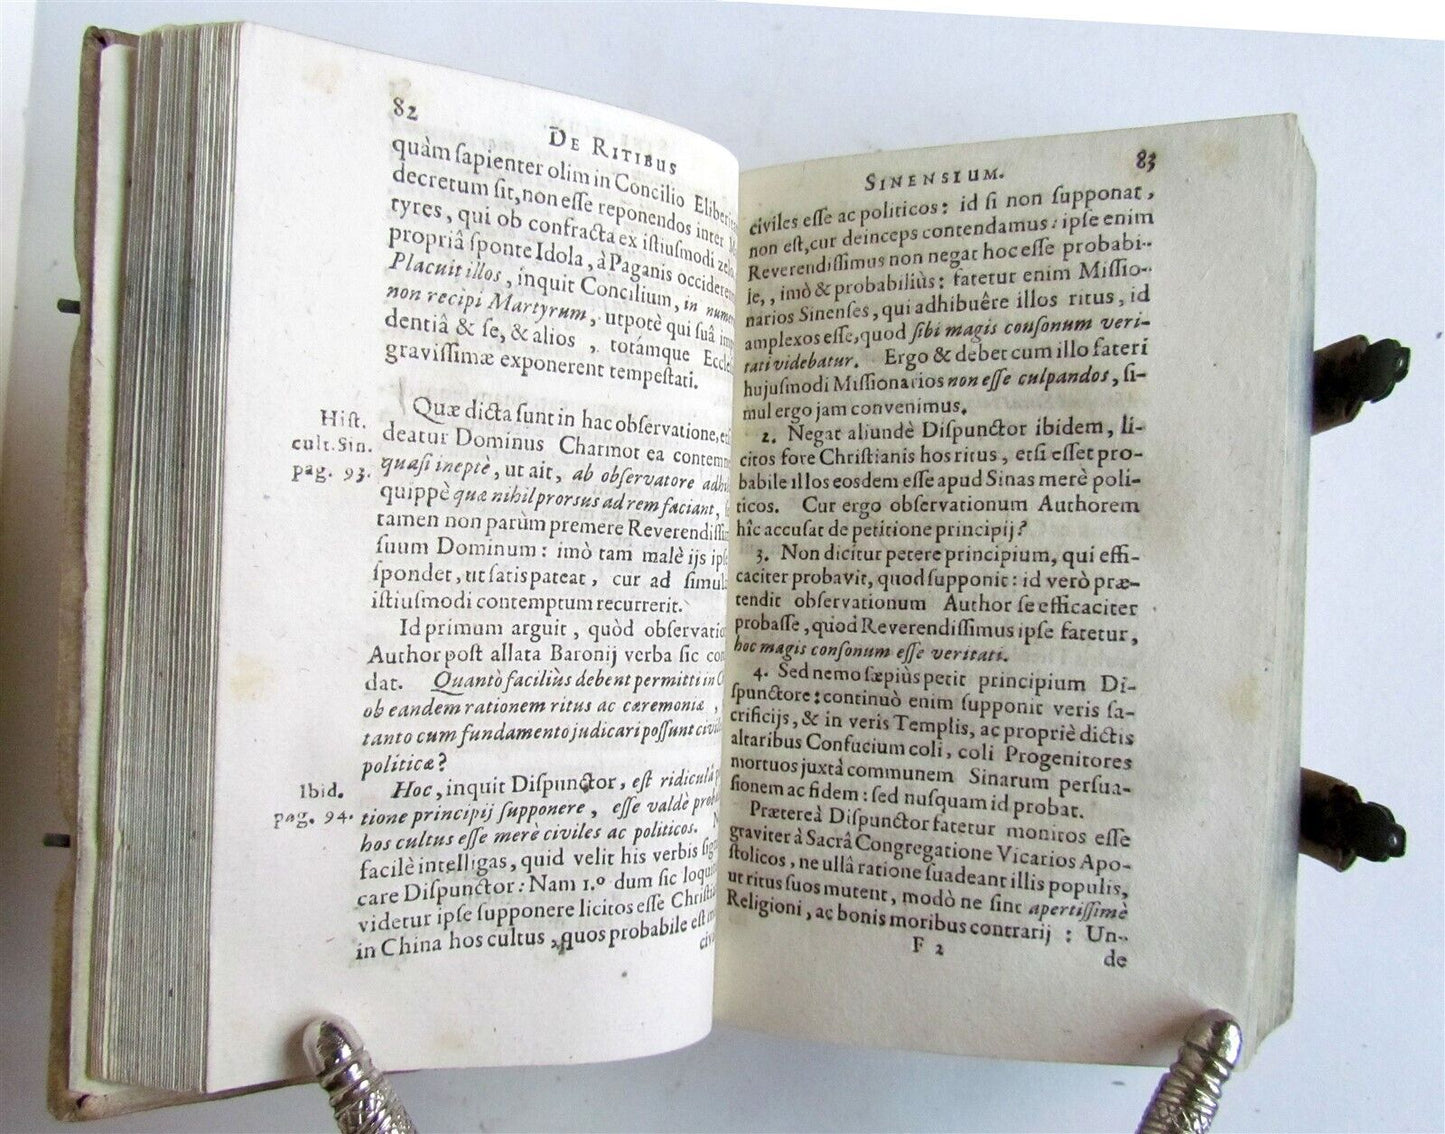 82
DE RITIBUS
quàm ſapienter olim in Concilio
decretum ſit, non eſſe reponendos inter
tyres, qui ob confracta ex iſtiuſmodi zelo
propriâ ſponte Idola, à Paganis
Placuit illos, inquit Concilium, in
non recipi Martyrum, utpotè qui ſuâ
dentiâ & ſe, & alios, totámque
graviſſimæ exponerent tempeſtati.
Quæ dicta ſunt in hac obſervatione,
Hiſt.
cult. Sin.
pag. 93.
deatur Dominus Charmot ea
quaſi ineptè, ut ait, ab obſervatore
quippè quæ nihil prorsus ad rem faciant,
tamen non parùm premere
ſuum Dominum: imò tam malè ijs
ſpondet, ut ſatis pateat, cur ad
iſtiuſmodi contemptum recurrerit.
Id primum arguit, quòd
Author poſt allata Baronij verba ſic
dat. Quantò faciliùs debent permitti in
ob eandem rationem ritus ac cæremoniæ,
tanto cum fundamento judicari poſſunt
politicæ?
Ibid.
pag. 94.
Hoc, inquit Diſpunctor, eſt
tione principij ſupponere, eſſe valdè
hos cultus eſſe merè civiles ac politicos.
facilè intelligas, quid velit his verbis
care Diſpunctor: Nam 1.º dum ſic
videtur ipſe ſupponere licitos eſſe
in China hos cultus, quos probabile eſt
83
SINENSIUM.
civiles eſſe ac politicos: id ſi non ſupponat,
non eſt, cur deinceps contendamus: ipſe enim
Reverendiſſimus non negat hoc eſſe probabi-
le,, imò & probabiliùs: fatetur enim Miſſio-
narios Sinenſes, qui adhibuêre illos ritus, id
amplexos eſſe, quod ſibi magis conſonum veri-
tati videbatur. Ergo & debet cum illo fateri
hujuſmodi Miſſionarios non eſſe culpandos, ſi-
mul ergo jam convenimus.
2. Negat aliundè Diſpunctor ibidem, li-
citos fore Chriſtianis hos ritus, etſi eſſet pro-
babile illos eosdem eſſe apud Sinas merè poli-
ticos. Cur ergo obſervationum Authorem
hîc accuſat de petitione principij?
3. Non dicitur petere principium, qui effi-
caciter probavit, quod ſupponit: id verò præ-
tendit obſervationum Author ſe efficaciter
probaſſe, quod Reverendiſſimus ipſe fatetur,
hoc magis conſonum eſſe veritati.
4. Sed nemo ſæpiùs petit principium Di-
ſpunctore: continuò enim ſupponit veris ſa-
crificijs, & in veris Templis, ac propriè dictis
altaribus Confucium coli, coli Progenitores
mortuos juxtà communem Sinarum perſua-
ſionem ac fidem: ſed nuſquam id probat.
Prætereà Diſpunctor fatetur monitos eſſe
graviter à Sacrâ Congregatione Vicarios Apo-
ſtolicos, ne ullâ ratione ſuadeant illis populis,
ut ritus ſuos mutent, modò ne ſint apertiſſimè
Religioni, ac bonis moribus contrarij : Un-
F 2
de